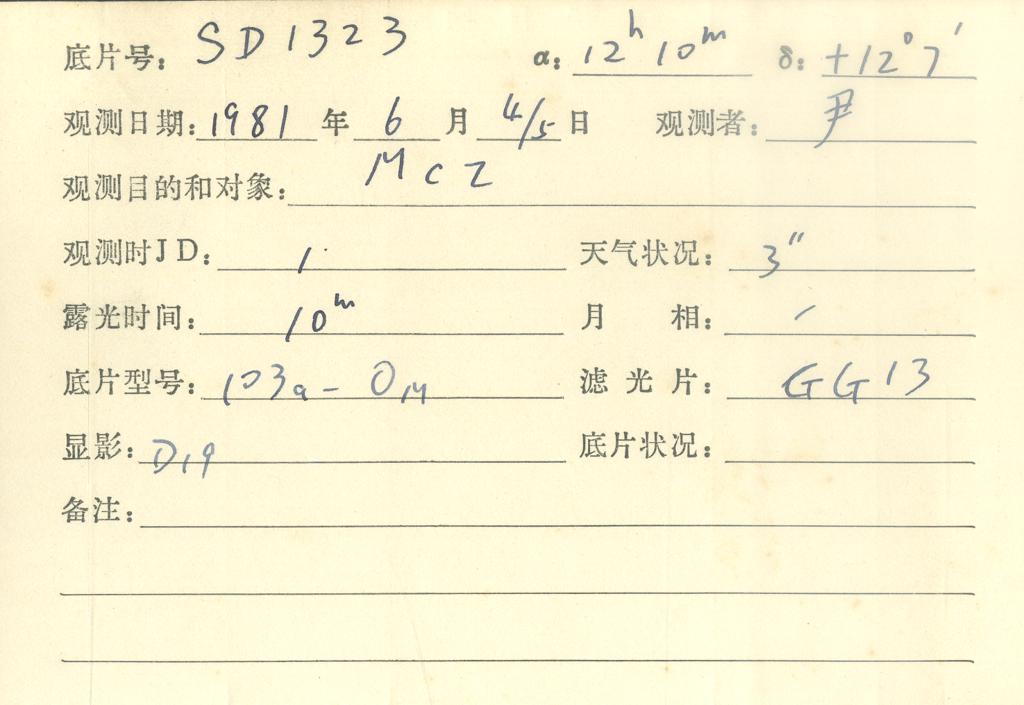 底片号: SD1323 α: 12ʰ 10ᵐ δ: +12°7′
观测日期: 1981 年 6 月 4/5 日 观测者: 尹
观测目的和对象: MCZ
观测时JD: / 天气状况: 3″
露光时间: 10ᵐ 月 相: /
底片型号: 103a-O 滤光片: GG13
显影: D19 底片状况:
备注: